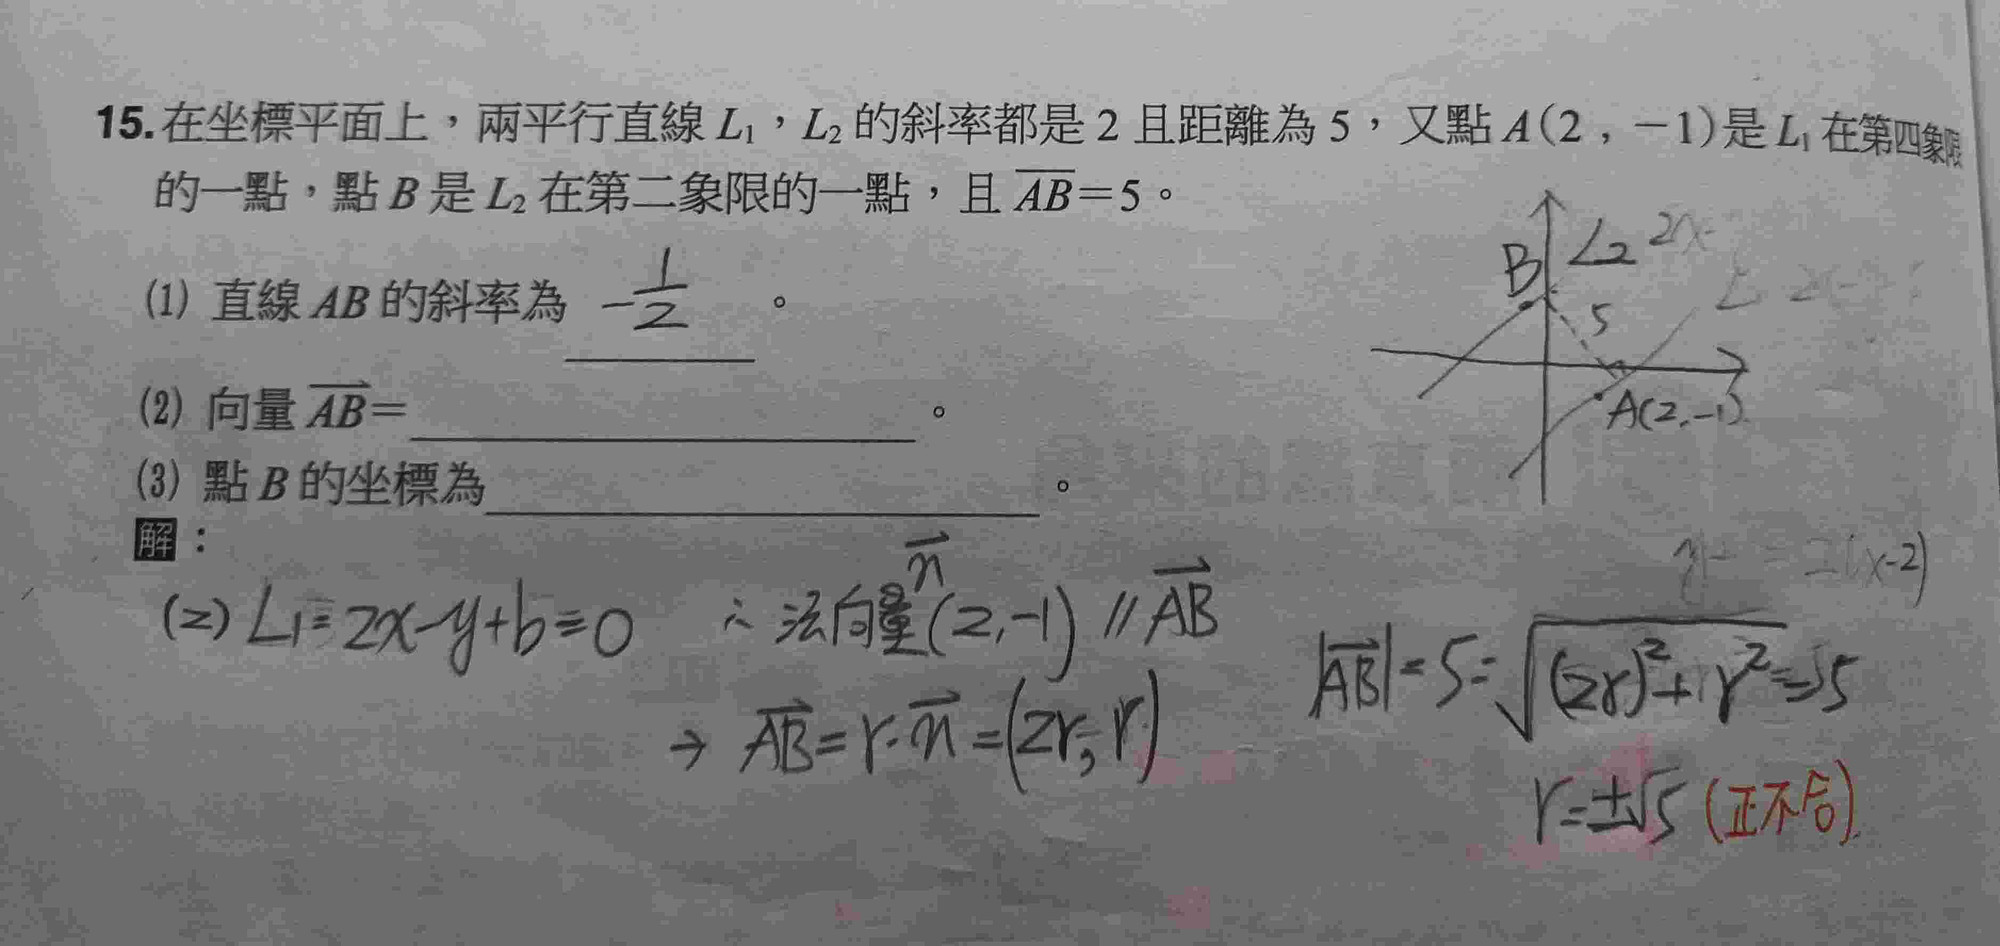 15.在坐標平面上，兩平行直線 L₁，L₂ 的斜率都是 2 且距離為 5，又點 A(2，－1)是 L₁ 在第四象限
的一點，點 B 是 L₂ 在第二象限的一點，且 \overline{AB}＝5。
(1) 直線 AB 的斜率為 -\frac{1}{2} 。
(2) 向量 \overrightarrow{AB}＝ 。
(3) 點 B 的坐標為 。
B L₂ 2x-
5
A(2,-1)
解：
= 2(x-2)
(2) L₁= 2x-y+b=0 ∴ 法向量 \overrightarrow{n} (2,-1) // \overrightarrow{AB}
→ \overrightarrow{AB} = r·\overrightarrow{n} = (2r,-r)
|\overrightarrow{AB}| = 5 = \sqrt{(2r)^2+r^2} = 5
r=±√5 (正不合)